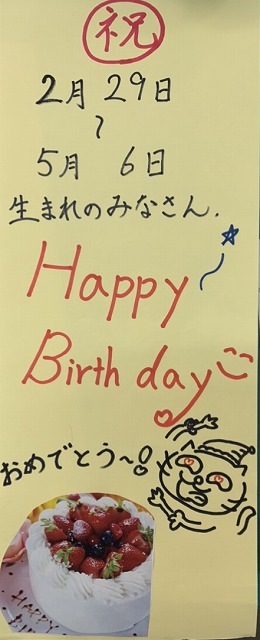 祝
2月 29日
〜
5月 6日
生まれのみなさん.
Happy
Birth day
おめでとう〜!
HAPPY